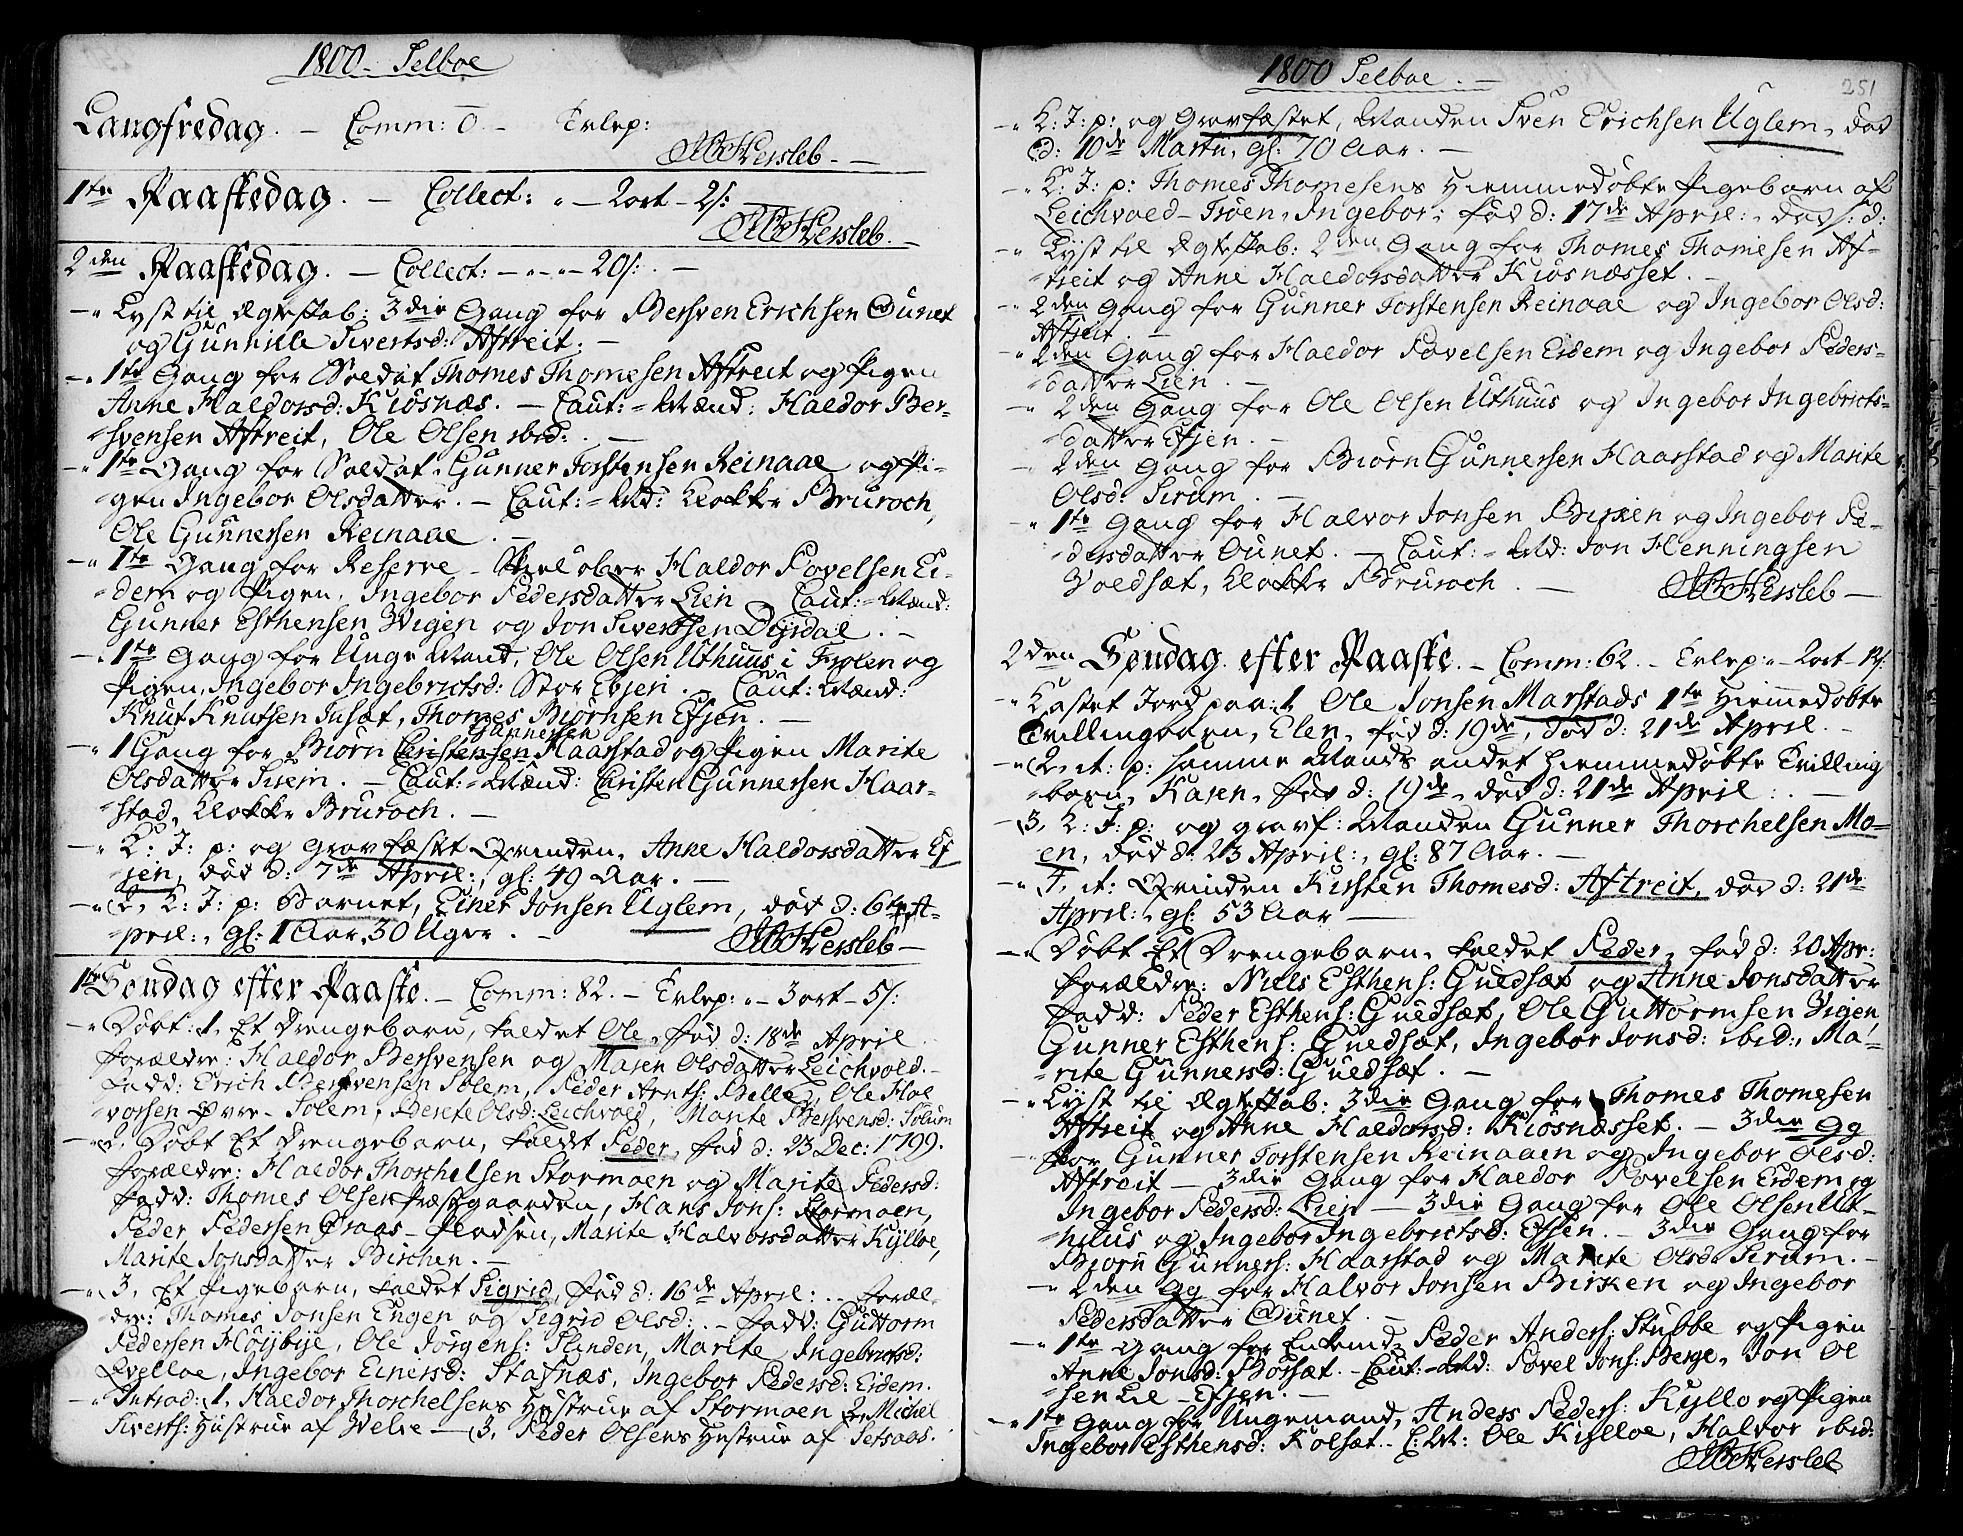 1800 - Selboe
Langfredag. - Comm: 0. - Exlep:
HBHersleb. -
1te Paaskedag. - Collect: " - 2ort - 2s: -
HBHersleb. -
2den Paaskedag. - Collect: - " - " - 20s: -
- " Lyst til Ægteskab: 3die Gang for Bersven Erichsen Ounet
og Gunhille Sivertsd: Aftreit. -
- " 1te Gang for Soldat Thomes Thomesen Aftreit og Pigen
Anne Haldorsd: Kiøsnæs. - Caut: = Mænd: Haldor Ber-
svensen Aftreit, Ole Olsen ibid: . -
- " 1te Gang for Soldat Gunner Torstensen Reinaae og Pi-
gen Ingebor Olsdatter. - Caut: = Md: Klokke Bruroch,
Ole Gunnersen Reinaae . -
- " 1te Gang for Reserve - Skiel øber Haldor Povelsen Ei-
dem og Pigen, Ingebor Pedersdatter Lien Caut: = Mænd:
Gunner Esthensen Wigen og Jon Sivertsen Dyrdal. -
- " 1te Gang for Unge Mand, Ole Olsen Uthuus i Tydlen og
Pigen, Ingebor Ingebrictsd: Stor Efjen. Caut: Mænd:
Knut Knutsen Jusæt, Thomes Biørnsen Efjen. -
Gunnersen
- " 1 Gang for Biørn Christensen Haarstad og Pigen Marite
Olsdatter Sirem. - Caut: = Mænd: Christen Gunnersen Haar-
stad, Klokke Bruroch. -
- " K: J: p: og Gravfæstet Qvinden, Anne Haldorsdatter Ef
jen, død d: 7de April:, gl: 49 Aar. -
- " 2, K: J: p: Barnet, Einer Jonsen Uglem, død d: 6te A-
pril:, gl: 1 Aar, 30 Uger. - HBHersleb -
1te Søndag efter Paaske. - Comm: 82. - Exlep: " - 3ort - 5s:
- " Døbt: 1, Et Drengebarn, kaldet Ole, fød d: 18de April
Forældre: Haldor Bersvensen og Maren Olsdatter Leichvold. -
Fadd: Erich Bersvensen Solem, Peder Arnts: Belle, Ole Hal
vorsen Øvre - Solem, Berete Olsd: Leichvold, Marite Bersvensd: Solum
- " 2. Døbt Et Drengebarn, kaldet Peder, fød d: 23 Dec: 1799.
Forældre: Haldor Thorchelsen Stormoen og Marite Pedersd:
Fadd: Thomes Olsen Præstgaarden, Hans Jons: Stormoen,
Peder Pedersen Draas - Pladsen, Marite Halvorsdatter Kylloe,
Marite Jonsdatter Birchen. -
- " 3, Et Pigebarn, kaldet Sigrid, fød d: 16de April: . Foræl-
dre: Thomes Jonsen Engen og Sigrid Olsd: . - Fadd: Guttorm
Pedersen Høijbije, Ole Jørgens: Slinden, Marite Ingebrictsd:
Qvelloe, Ingebor Einersd: Stafnæs, Ingebor Pedersd: Eidem.
- " Introd: 1, Haldor Thorchelsens Hustrue af Stormoen 2, Michel
Siverts: Hustrue af Velve - 3, Peder Olsens Hustrue af Setsaas.
1800 Selboe. -
251
- " K: J: p: og Gravfæstet, Manden Sven Erichsen Uglem, død
d: 10de Martii, gl: 70 Aar. -
- " K: J: p: Thomes Thomesens Hiemmedøbte Pigebarn af
Leichvold - Trøen, Ingebor, fød d: 17de April:, død s: d:
- " Lyst til Ægteskab: 2den Gang for Thomes Thomesen Af-
treit og Anne Haldorsdatter Kiøsnæsset. -
- " 2den Gang for Gunner Torstensen Reinaae og Ingebor Olsd:
Aftreit. -
- " 2den Gang for Haldor Povelsen Eidem og Ingebor Peders-
datter Lien. -
- " 2den Gang for Ole Olsen Uthuus og Ingebor Ingebricts-
datter Efjen. -
- " 2den Gang for Biørn Gunnersen Haarstad og Marite
Olsd: Sirum. -
- " 1te Gang for Halvor Jonsen Birken og Ingebor Pe-
dersdatter Ounet. - Caut: = Md: Jon Henningsen
Voldsæt, Klokke Bruroch. -
HBHersleb -
2den Søndag efter Paaske. - Comm: 62. - Exlep: " - 2ort - 12s:
- " Kastet Jord paa: 1 Ole Jonsen Marstads 1te Hiemmedøbte
Tvillingbarn, Elen, fød d: 19de, død d: 21de April. -
- " 2, it: p: samme Mands andet hiemmedøbte Tvilling
barn, Karen, fød d: 19de, død d: 21de April: . -
- " 3, K: J: p: og gravf: Manden Gunner Thorchelsen Mo-
en, død d: 23 April:, gl: 87 Aar. -
- " 4, it: Qvinden Kirsten Thomesd: Aftreit, død d: 21de
April:, gl: 53 Aar -
- " Døbt Et Drengebarn, kaldet Peder, fød d: 20 Apr:
Forældre: Niels Esthens: Guldsæt og Anne Jonsdatter
Fadd: Peder Esthens: Guldsæt, Ole Guttormsen Vigen
Gunner Esthens: Guldsæt, Ingebor Jonsd: ibid:, Ma-
rite Gunnersd: Guldsæt. -
- " Lyst til Ægteskab: 3die Gang for Thomes Thomesen
Aftreit og Anne Haldorsd: Kiøsnæsset. - 3die Gg
for Gunner Torstensen Reinaaen og Ingebor Olsd:
Aftreit - 3die Gang for Haldor Povelsen Eidem og
Ingebor Pedersd: Lien - 3die Gang for Ole Olsen Ut-
huus og Ingebor Ingebrictsd: Efjen. - 3die Gang for
Biørn Gunners: Haarstad og Marite Olsd: Sirum. -
- " 2den Gg for Halvor Jonsen Birken og Ingebor
Pedersdatter Ounet. -
- " 1te Gang for Enkemd: Peder Anders: Stubbe og Pigen
Anne Jonsd: Børsæt. - Caut: = Md: Povel Jons: Berge, Jon Ol
sen Lil - Efjen. -
- " 1te Gang for Ungemand, Anders Peders: Kyllo og Pigen
Ingebor Esthensd: Kolsæt. - C: M: Ole Kylloe, Halvor ibid:
HBHersleb